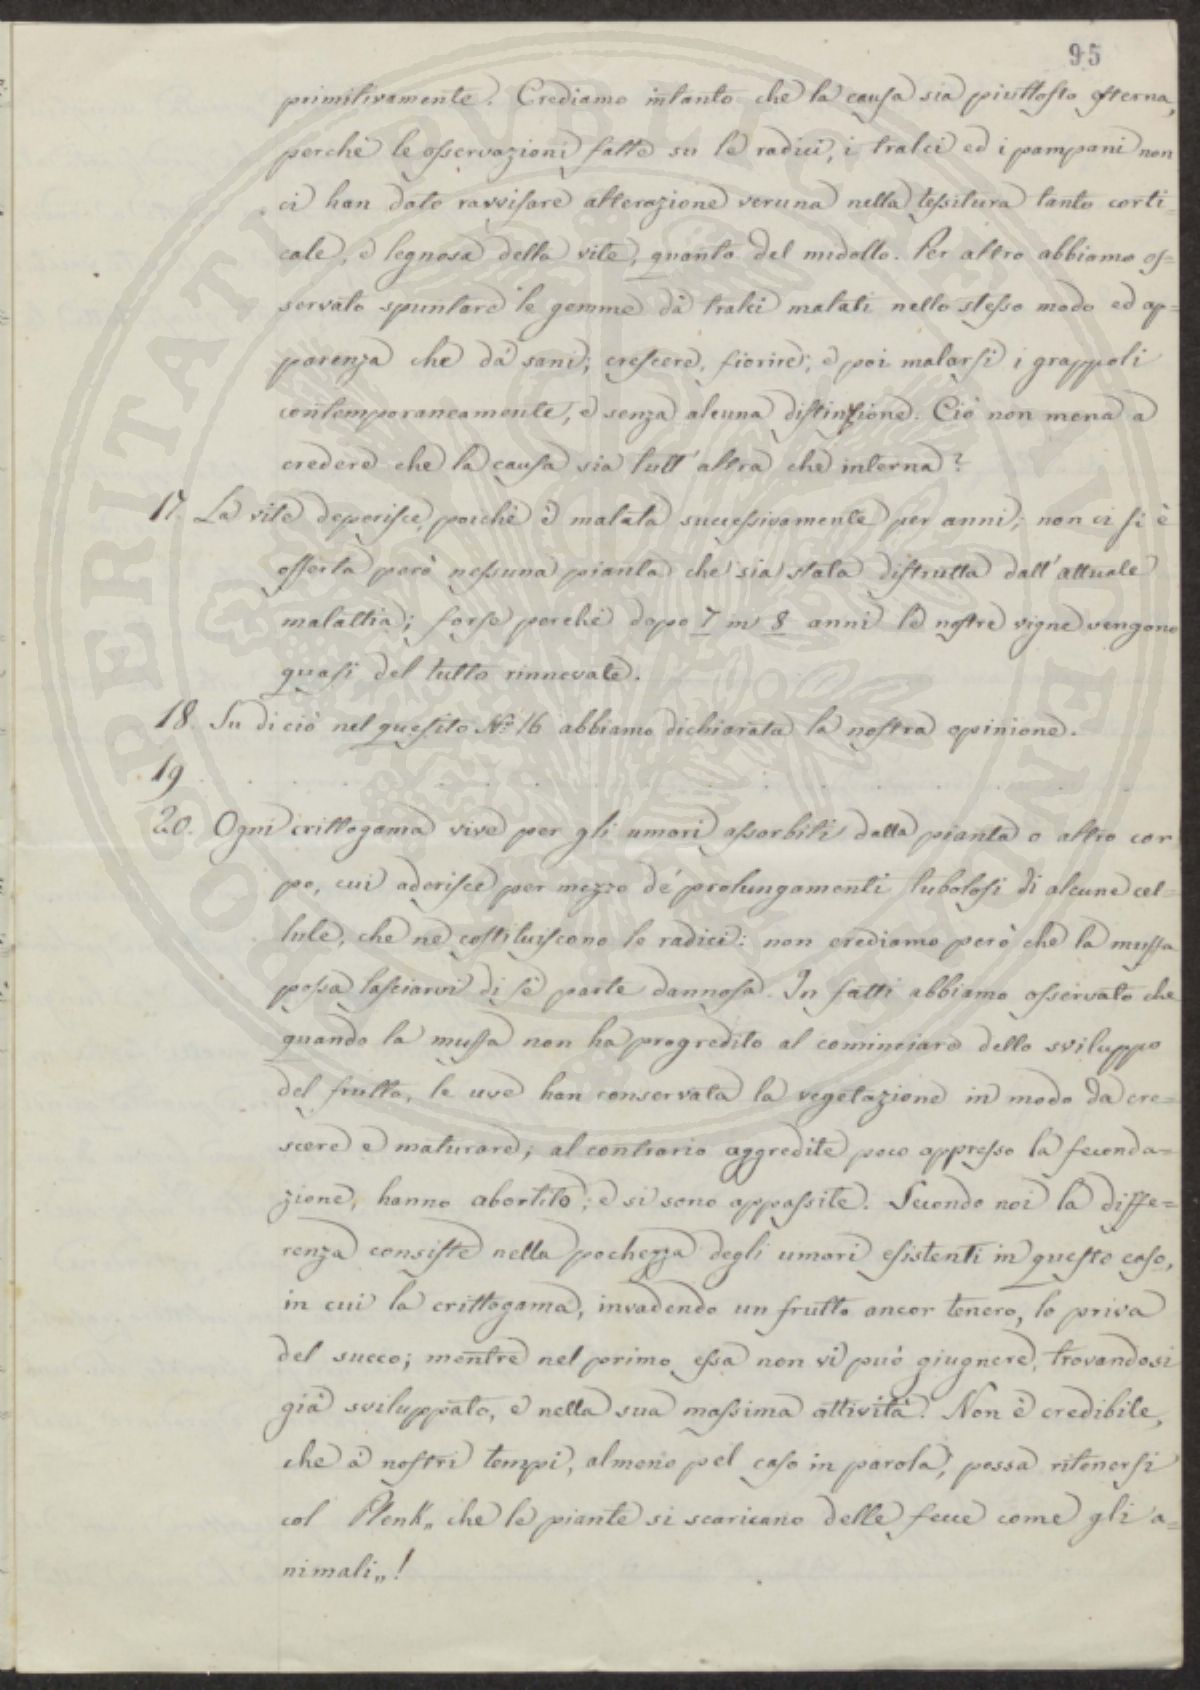 95
primitivamente. Crediamo intanto che la causa sia piuttosto esterna,
perchè le osservazioni fatte su le radici, i tralci ed i pampani non
ci han dato ravvisare alterazione veruna nella tessitura tanto corti-
cale, e legnosa della vite, quanto del midollo. Per altro abbiamo os=
servato spuntare le gemme dà tralci malati nello stesso modo ed ap=
parenza che dà sani; crescere, fiorire; e poi malarsi i grappoli
contemporaneamente, e senza alcuna distinzione. Ciò non mena a
credere che la causa sia tutt'altra che interna?
17. La vite deperisce, poichè è malata successivamente per anni; non ci si è
offerta però nessuna pianta che sia stata distrutta dall'attuale
malattia; forse perchè dopo 7 in 8 anni le nostre vigne vengono
quasi del tutto rinnovate.
18. Su di ciò nel quesito N.º 16 abbiamo dichiarata la nostra opinione.
19 . . . . . . . . . . . .
20. Ogni crittogama vive per gli umori assorbiti dalla pianta o altro cor
po, cui aderisce per mezzo dé prolungamenti tubolosi di alcune cel=
lule, che ne costituiscono le radici: non crediamo però che la muffa
possa lasciarvi di sè parte dannosa. In fatti abbiamo osservato che
quando la muffa non ha progredito al cominciare dello sviluppo
del frutto, le uve han conservata la vegetazione in modo da cre=
scere e maturare; al contrario aggredite poco appresso la feconda=
zione, hanno abortito; e si sono appassite. Secondo noi la diffe=
renza consiste nella pochezza degli umori esistenti in questo caso,
in cui la crittogama, invadendo un frutto ancor tenero, lo priva
del succo; mentre nel primo essa non vi può giugnere, trovandosi
già sviluppato, e nella sua massima attività. Non è credibile,
che à nostri tempi, almeno pel caso in parola, possa ritenersi
col Plenk„ che le piante si scaricano delle fecce come gli a=
nimali„!
PROSPERITATI PUBLICAE AUGENDAE